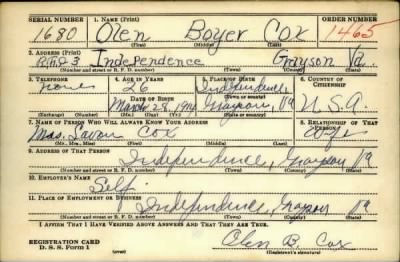 SERIAL NUMBER 1. NAME (Print) ORDER NUMBER
1680 Olen Boyer Cox 1465
(First) (Middle) (Last)
2. ADDRESS (Print)
R.F.D 3 Independence Grayson Va.
(Number and street or R. F. D. number) (Town) (County) (State)
3. TELEPHONE 4. AGE IN YEARS 5. PLACE OF BIRTH 6. COUNTRY OF CITIZENSHIP
none 26 Independence,
DATE OF BIRTH (Town or county)
March 28, Grayson, Va U.S.A.
(Exchange) (Number) (Mo.) (Day) (Yr.) (State or country)
7. NAME OF PERSON WHO WILL ALWAYS KNOW YOUR ADDRESS 8. RELATIONSHIP OF THAT PERSON
Mrs. Cox Wife
(Mr., Mrs., Miss) (First) (Middle) (Last)
9. ADDRESS OF THAT PERSON
Independence, Grayson Va
(Number and street or R. F. D. number) (Town) (County) (State)
10. EMPLOYER'S NAME
Self
11. PLACE OF EMPLOYMENT OR BUSINESS
Independence, Grayson Va
(Number and street or R. F. D. number) (Town) (County) (State)
I AFFIRM THAT I HAVE VERIFIED ABOVE ANSWERS AND THAT THEY ARE TRUE.
REGISTRATION CARD
D. S. S. Form 1 (over) Olen B. Cox
(Registrant's signature)